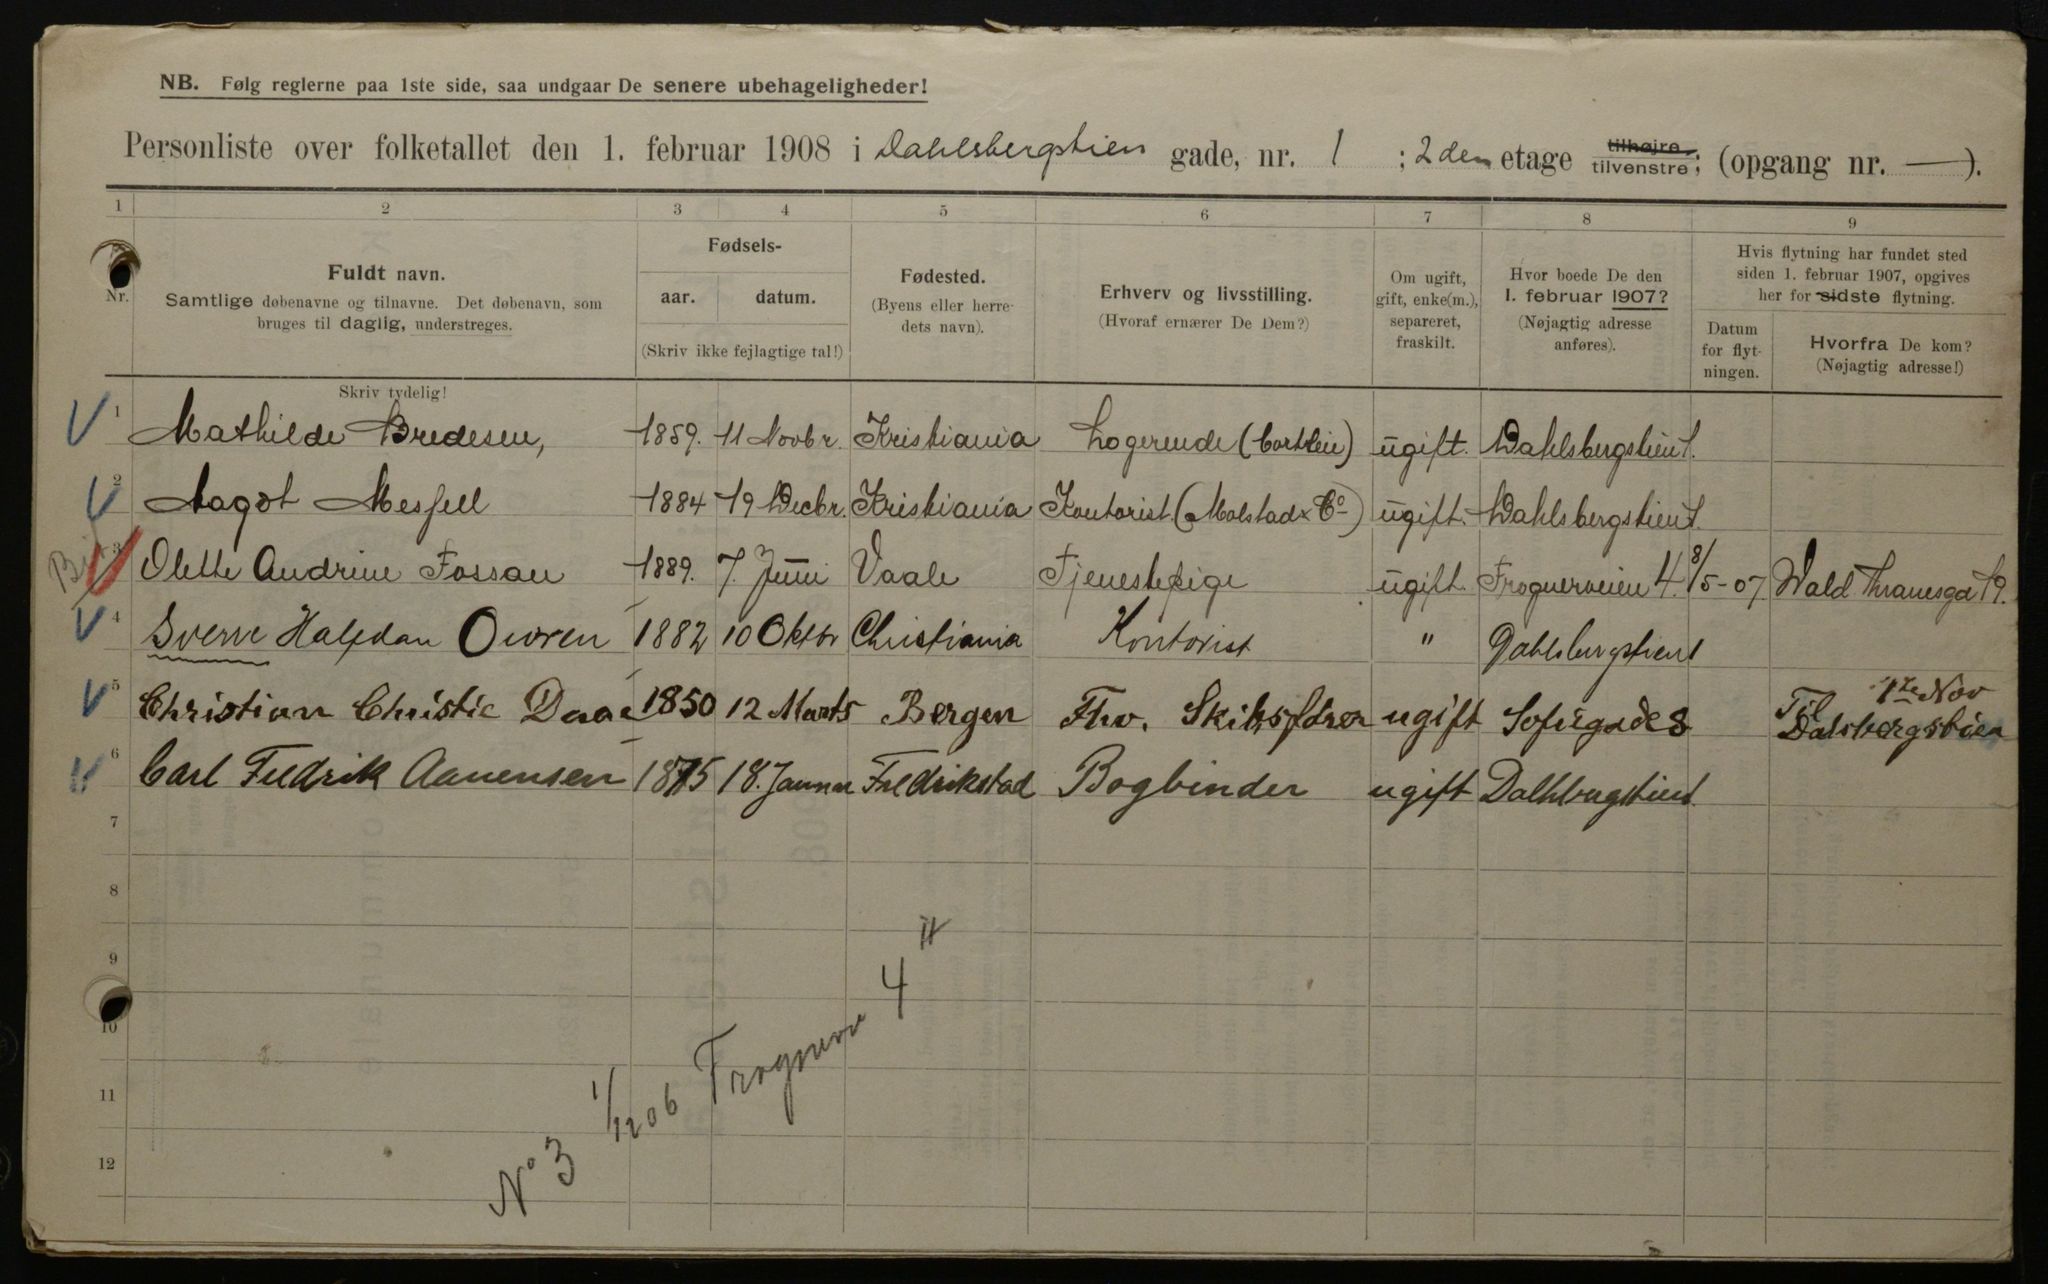 NB. Følg reglerne paa 1ste side, saa undgaar De senere ubehageligheder!
Personliste over folketallet den 1. februar 1908 i Dahlsbergstien gade, nr. 1 ; 2den etage tilhøjre tilvenstre; (opgang nr. — ).
1 2 3 4 5 6 7 8 9
Nr.
Fuldt navn.
Samtlige døbenavne og tilnavne. Det døbenavn, som
bruges til daglig, understreges.
Skriv tydelig!
Fødsels-
aar. datum.
(Skriv ikke fejlagtige tal!)
Fødested.
(Byens eller herre-
dets navn).
Erhverv og livsstilling.
(Hvoraf ernærer De Dem?)
Om ugift,
gift, enke(m.),
separeret,
fraskilt.
Hvor boede De den
1. februar 1907?
(Nøjagtig adresse
anføres).
Hvis flytning har fundet sted
siden 1. februar 1907, opgives
her for sidste flytning.
Datum
for flyt-
ningen.
Hvorfra De kom?
(Nøjagtig adresse!)
1 Mathilde Bredesen, 1859. 11 Novbr. Kristiania Logerende ugift. Dahlsbergstien 1.
2 Aagot Mesfell 1884 19 Decbr. Kristiania Kontorist (Molstad & Co) ugift. Dahlsbergstien 1.
3 Olette Andrine Fossan 1889. 7. Juni Vaale Tjenestepige ugift. Frognerveien 4. 8/5-07. Wald Thranesga 19.
4 Sverre Halfdan Owren 1882 10 Oktbr Christiania Kontorist " Dahlsbergstien 1
5 Christian Christie Daae 1850 12 Marts Bergen Fhv. Skibsfører ugift Sofiegade 8 Til 1ste Nov
Dalsbergstien
6 Carl Fredrik Aanensen 1875 18. Januar Fredrikstad Bogbinder ugift Dalhbergstien 1
7
8
9
10
11
12
No 3 1/12 06 Frognerv 4 II